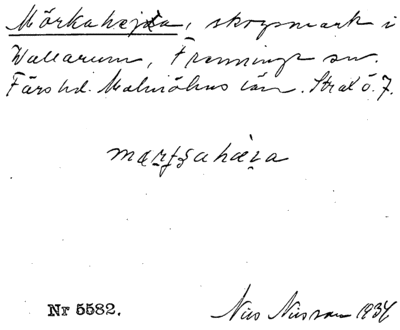 Mörkahejda, skogsmark i
Wallarum, Frenninge sn.
Färs hd. Malmöhus län. Strax ö. 7.
Nr 5582. Nils Nilsson 1934